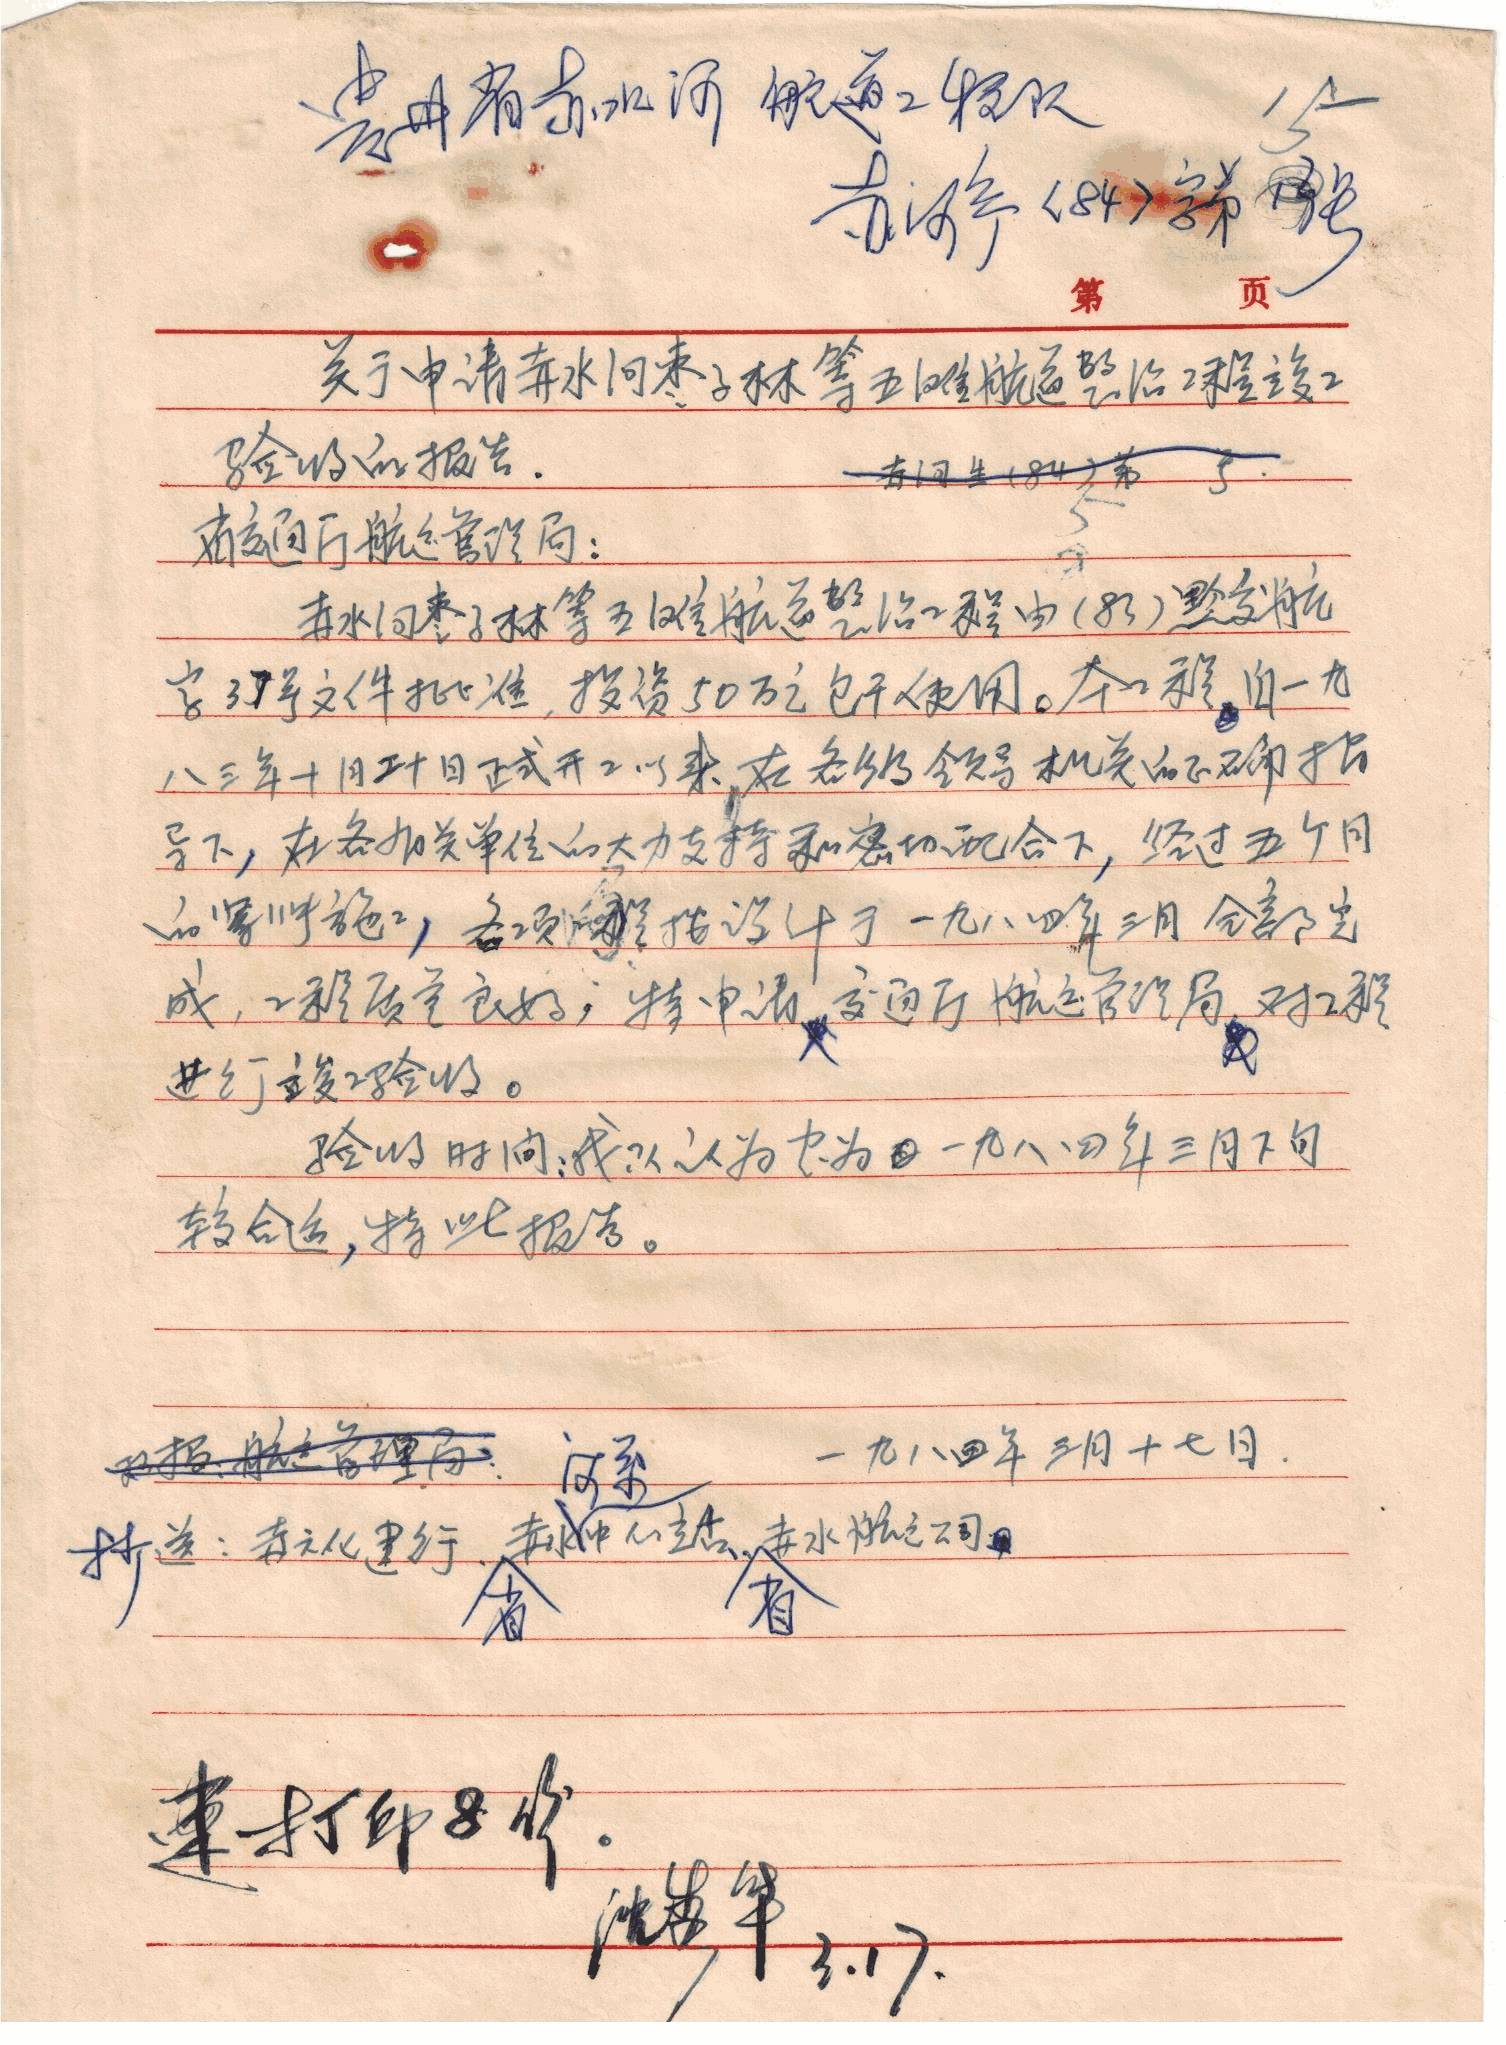 贵州省赤水河航道工程队
15
赤河字(84)字第 号
第 页
关于申请赤水河枣子林等五滩航道整治工程竣工
验收的报告.
赤河 (84)第 5.
5
省交通厅航运管理局：
赤水河枣子林等五滩航道整治工程由(83)黔交航
字37号文件批准,投资50万元包干使用。本工程自一九
八三年十月二十日正式开工以来,在各级领导机关的正确指
导下,在各有关单位的大力支持和密切配合下,经过五个月
的紧张施工,各项工程按设计于一九八四年三月全部完
成,工程质量良好;特申请交通厅航运管理局对工程
进行竣工验收。
验收时间：我队认为定为一九八四年三月下旬
较合适,特此报告。
报：航运管理局. 一九八四年三月十七日.
抄送：赤水建行、省赤水河系中心站、省赤水航运公司
速打印8份。
沈 华
3.17.